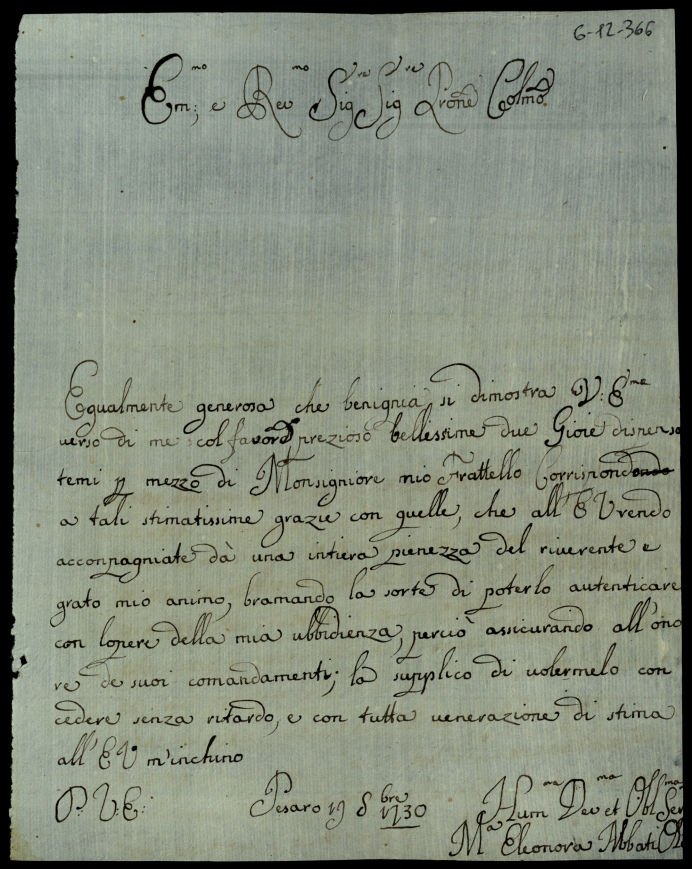 6-12-366
Em:mo e Reu mo Sig re Sig re Prone Colmo
Egualmente generosa che benignia, si dimostra V: E me
verso di me col favore prezioso bellessime due Gioie dispensa
temi p mezzo di Monsigniore mio Frattello Corrispondo
a tali stimatissime grazie con quelle, che all' E V rendo
acconpagniate dà una intiera pienezza del riverente e
grato mio animo, bramando la sorte di poterlo autenticare
con lopere della mia ubbidienza, perciò assicurando all' ono
re de suoi comandamenti; la supplico di volermelo con
cedere senza ritardo, e con tutta venerazione di stima
all' E V m'inchino
P. V. E: Pesaro 19 8 bre 1730 Hum ma Deu ma et Obl ma Ser
M a Eleonora Abbati